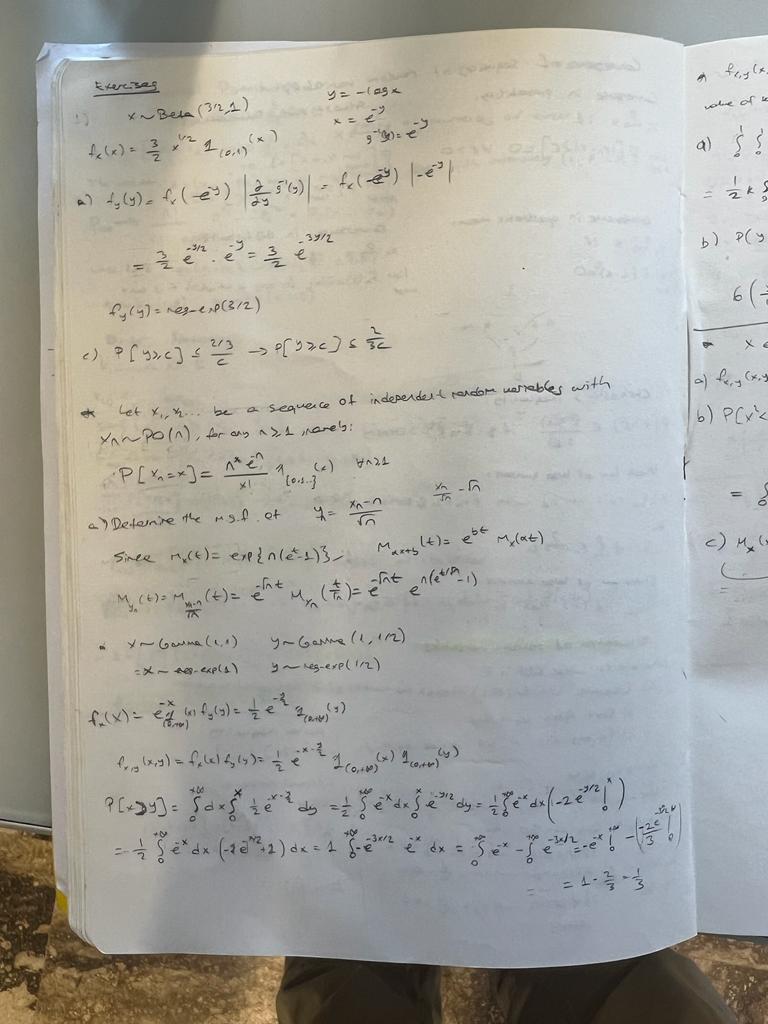 Exercises
1) x ~ Beta(3/2, 1) y = -log x
x = e^{-y}
f_x(x) = 3/2 x^{1/2} 1_{(0,1)}(x) g^{-1}(y) = e^{-y}
a) f_y(y) = f_x(-e^{-y}) |∂/∂y g^{-1}(y)| = f_x(-e^{-y}) |-e^{-y}|
= 3/2 e^{-y/2} · e^{-y} = 3/2 e^{-3y/2}
f_y(y) = neg-exp(3/2)
c) P[y ≥ c] ≤ (2/3)/c → P[y ≥ c] ≤ 2/3c
Let x_1, x_2 ... be a sequence of independent random variables with
x_n ~ PO(n), for any n ≥ 1, namely:
P[x_n = x] = n^x e^{-n}/x! 1_{{0,1..}}(x) ∀n≥1
a) Determine the m.g.f. of y_n = (x_n - n)/√n x_n/√n - √n
Since M_x(t) = exp{n(e^t - 1)}, M_{ax+b}(t) = e^{bt} M_x(at)
M_{y_n}(t) = M_{(x_n-n)/√n}(t) = e^{-√n t} M_{x_n}(t/√n) = e^{-√n t} e^{n(e^{t/√n} - 1)}
x ~ Gamma(1,1) y ~ Gamma(1, 1/2)
= x ~ neg-exp(1) y ~ neg-exp(1/2)
f_x(x) = e^{-x} 1_{(0,+∞)}(x) f_y(y) = 1/2 e^{-y/2} 1_{(0,+∞)}(y)
f_{x,y}(x,y) = f_x(x) f_y(y) = 1/2 e^{-x-y/2} 1_{(0,+∞)}(x) 1_{(0,+∞)}(y)
P[x>y] = ∫_0^{+∞} dx ∫_0^x 1/2 e^{-x-y/2} dy = 1/2 ∫_0^{+∞} e^{-x} dx ∫_0^x e^{-y/2} dy = 1/2 ∫_0^{+∞} e^{-x} dx (-2e^{-y/2} |_0^x)
= 1/2 ∫_0^{+∞} e^{-x} dx (-2e^{-x/2} + 2) dx = 1 ∫_0^{+∞} -e^{-3x/2} e^{-x} dx = ∫_0^{+∞} e^{-x} - ∫_0^{+∞} e^{-3x/2} = -e^{-x} |_0^{+∞} - (-2e^{-3/2 x}/3 |_0^{+∞})
= = 1 - 2/3 = 1/3
f_{x,y}(x,
value of
a) ∫_0^1 ∫
= 1/2 k ∫
b) P(y
6(
x
a) f_{x,y}(x,y
b) P[x² <
= ∫_0
c) M_x(
=